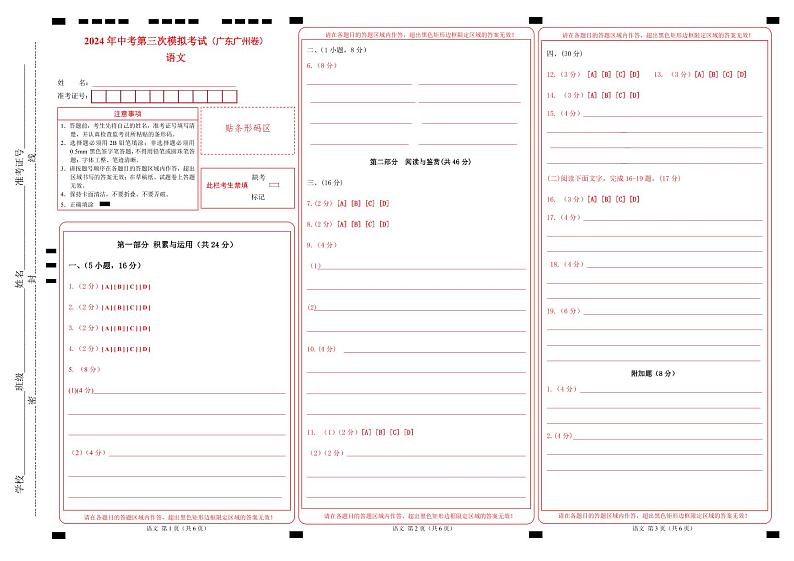 学校
班级
姓名
准考证号
密
封
线
2024 年中考第三次模拟考试（广东广州卷）
语文
姓 名：
准考证号：
注意事项
1．答题前，考生先将自己的姓名，准考证号填写清
楚，并认真检查监考员所粘贴的条形码。
2．选择题必须用 2B 铅笔填涂；非选择题必须用
0.5mm 黑色签字笔答题，不得用铅笔或圆珠笔答
题；字体工整、笔迹清晰。
3．请按题号顺序在各题目的答题区域内作答，超出
区域书写的答案无效；在草稿纸、试题卷上答题
无效。
4．保持卡面清洁，不要折叠、不要弄破。
5．正确填涂
贴条形码区
此栏考生禁填
缺考
标记
第一部分 积累与运用（共 24 分）
一、（5 小题，16 分）
1.（2 分）[ A ] [ B ] [ C ] [ D ]
2.（2 分）[ A ] [ B ] [ C ] [ D ]
3.（2 分）[ A ] [ B ] [ C ] [ D ]
4.（2 分）[ A ] [ B ] [ C ] [ D ]
5. （8 分）
(1)(4 分)
（2）（4 分）
请在各题目的答题区域内作答，超出黑色矩形边框限定区域的答案无效！
语文 第 1 页（共 6 页）
请在各题目的答题区域内作答，超出黑色矩形边框限定区域的答案无效！
二、（1 小题，8 分）
6.（8 分）
第二部分 阅读与鉴赏(共 46 分)
三、（16 分）
7.(2 分) [A] [B] [C] [D]
8.(2 分) [A] [B] [C] [D]
9.（4 分）
（1）
(2)
10.(4 分)
11. （1）（2 分）[A] [B] [C] [D]
（2）（2 分）
请在各题目的答题区域内作答，超出黑色矩形边框限定区域的答案无效！
语文 第 2 页（共 6 页）
请在各题目的答题区域内作答，超出黑色矩形边框限定区域的答案无效！
四、(30 分)
12.（3 分） [A] [B] [C] [D] 13. （3 分）[A] [B] [C] [D]
14. （3 分）[A] [B] [C] [D]
15.（4 分）
(二)阅读下面文字，完成 16-19 题。(17 分)
16. （3 分）[A] [B] [C] [D]
17.（4 分）
18.（4 分）
19.（6 分）
附加题（8 分）
1.（4 分）
2.(4 分)
请在各题目的答题区域内作答，超出黑色矩形边框限定区域的答案无效！
语文 第 3 页（共 6 页）